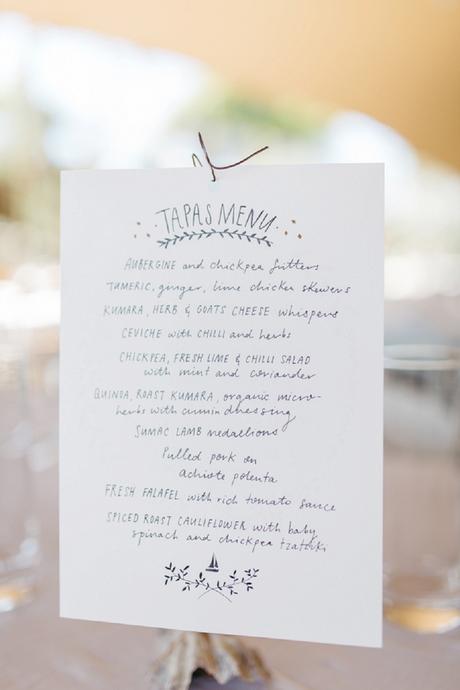 TAPAS MENU
AUBERGINE and chickpea fritters
TUMERIC, ginger, lime chicken skewers
KUMARA, HERB & GOATS CHEESE whispers
CEVICHE with CHILLI and herbs
CHICKPEA, FRESH LIME & CHILLI SALAD
with mint and coriander
QUINOA, ROAST KUMARA, organic micro-
herbs with cumin dressing
SUMAC LAMB medallions
Pulled pork on
achiote polenta
FRESH FALAFEL with rich tomato sauce
SPICED ROAST CAULIFLOWER with baby
spinach and chickpea tzatziki